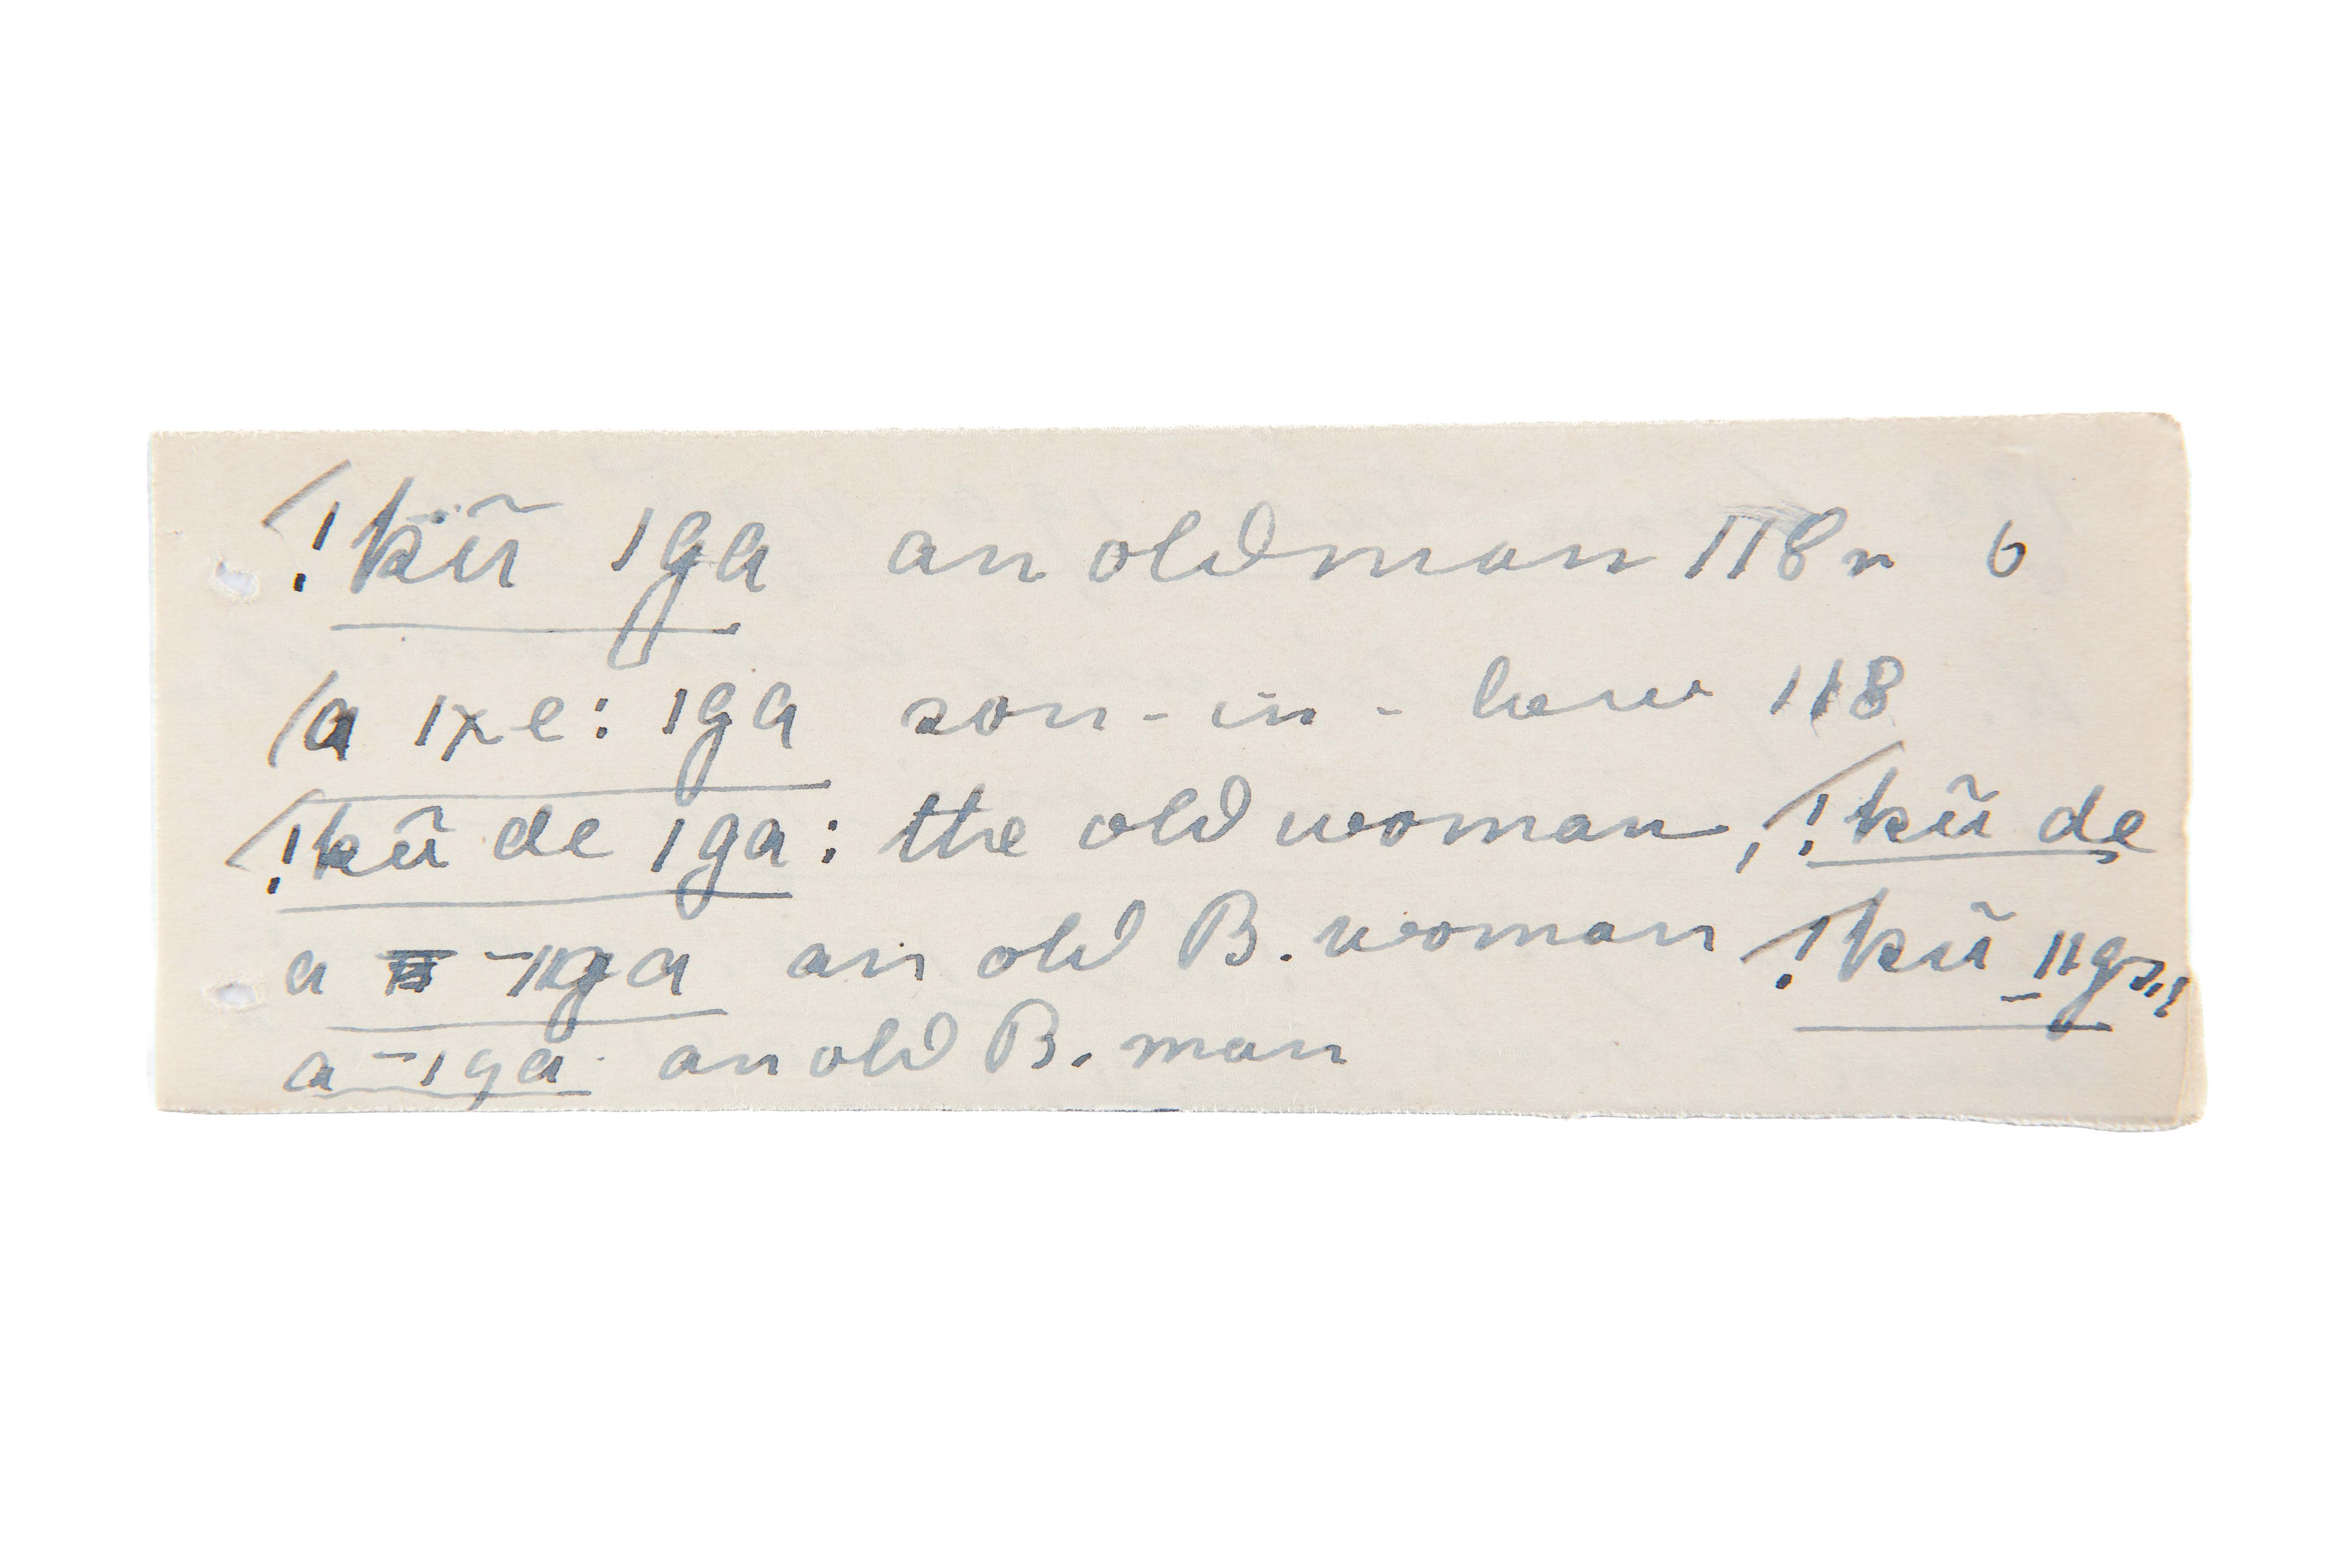 !kũ ǀga an old man 118 n 6
a ǀxe: ǀga son-in-law 118
!kũ de ǀga: the old woman, !kũ de
a -ǀga an old B. woman !kũ
a -ǀga an old B. man